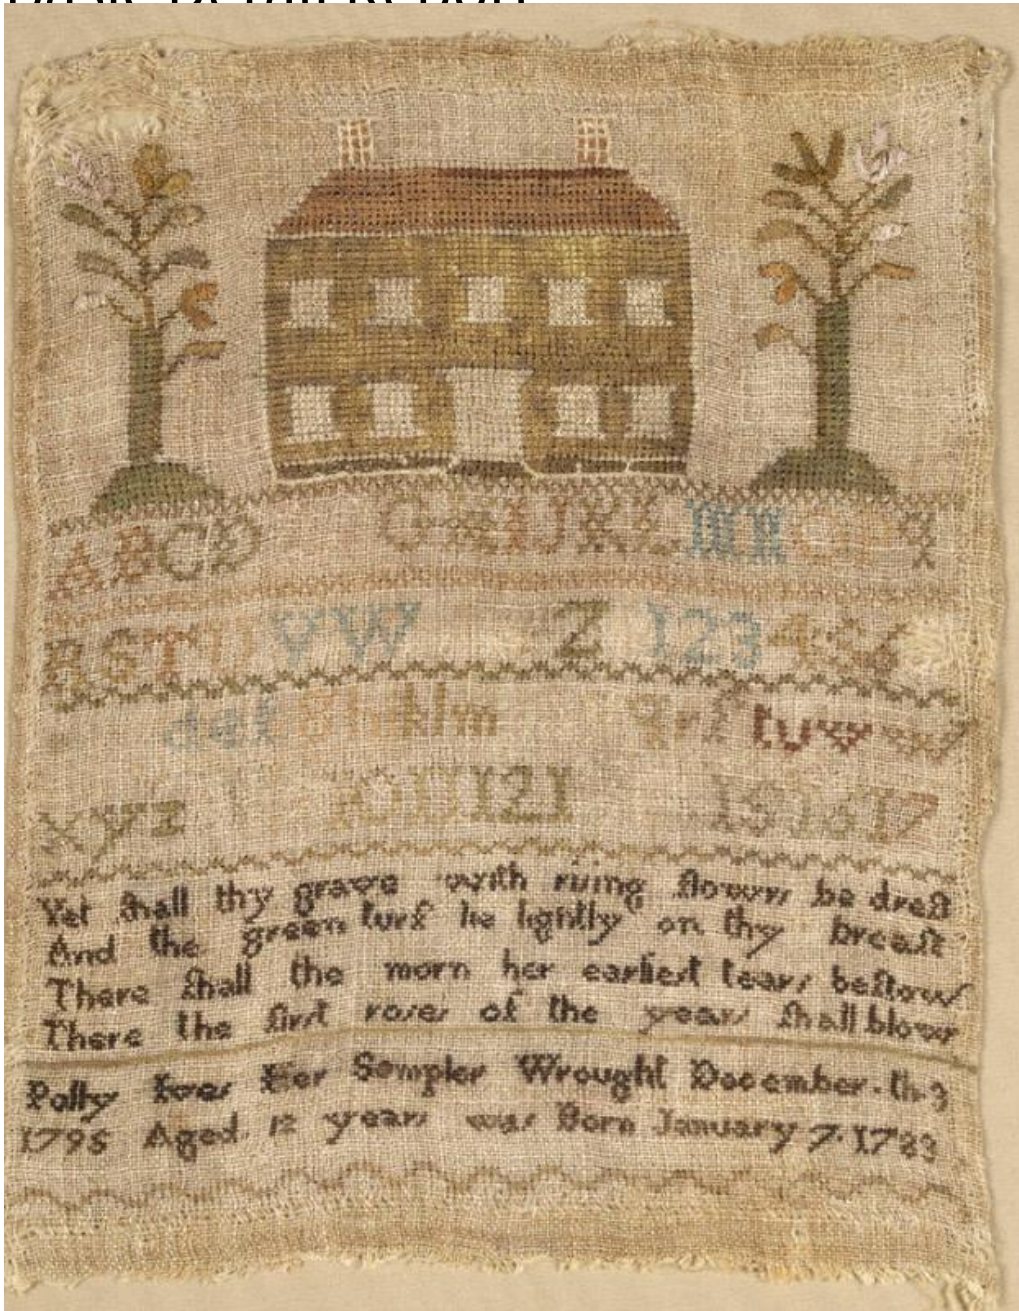 ABCD G H I J K L M N O P q
R S T U V W Z 1 2 3 4 5 6
d e f g h i k l m q r ſ t u v w
x y z 10 11 12 1 15 16 17
Yet ſhall thy grave with riſing flowers be dreſt
And the green turf lie lightly on thy breaſt
There ſhall the morn her earlieſt tears beſtow
There the firſt roſes of the year ſhall blow
Polly Ives Her Sampler Wrought December th 3
1795 Aged 12 years was Born January 7 1783